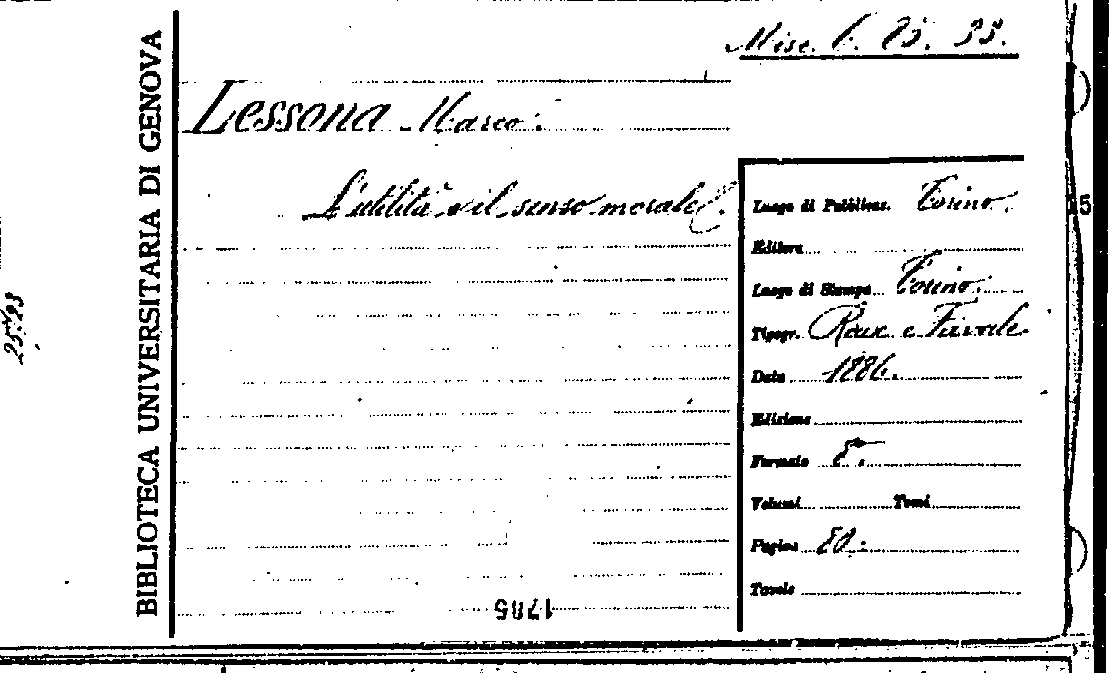 Misc. C. 25. 33.
BIBLIOTECA UNIVERSITARIA DI GENOVA
Lessona Marco.
L'utilità e il senso morale.
Luogo di Pubblicaz. Torino.
Editore
Luogo di Stampa Torino.
Tipogr. Roux e Favale
Data 1886.
Edizione
Formato 8°.
Volumi Tomi
Pagine 80.
Tavole
1785
15